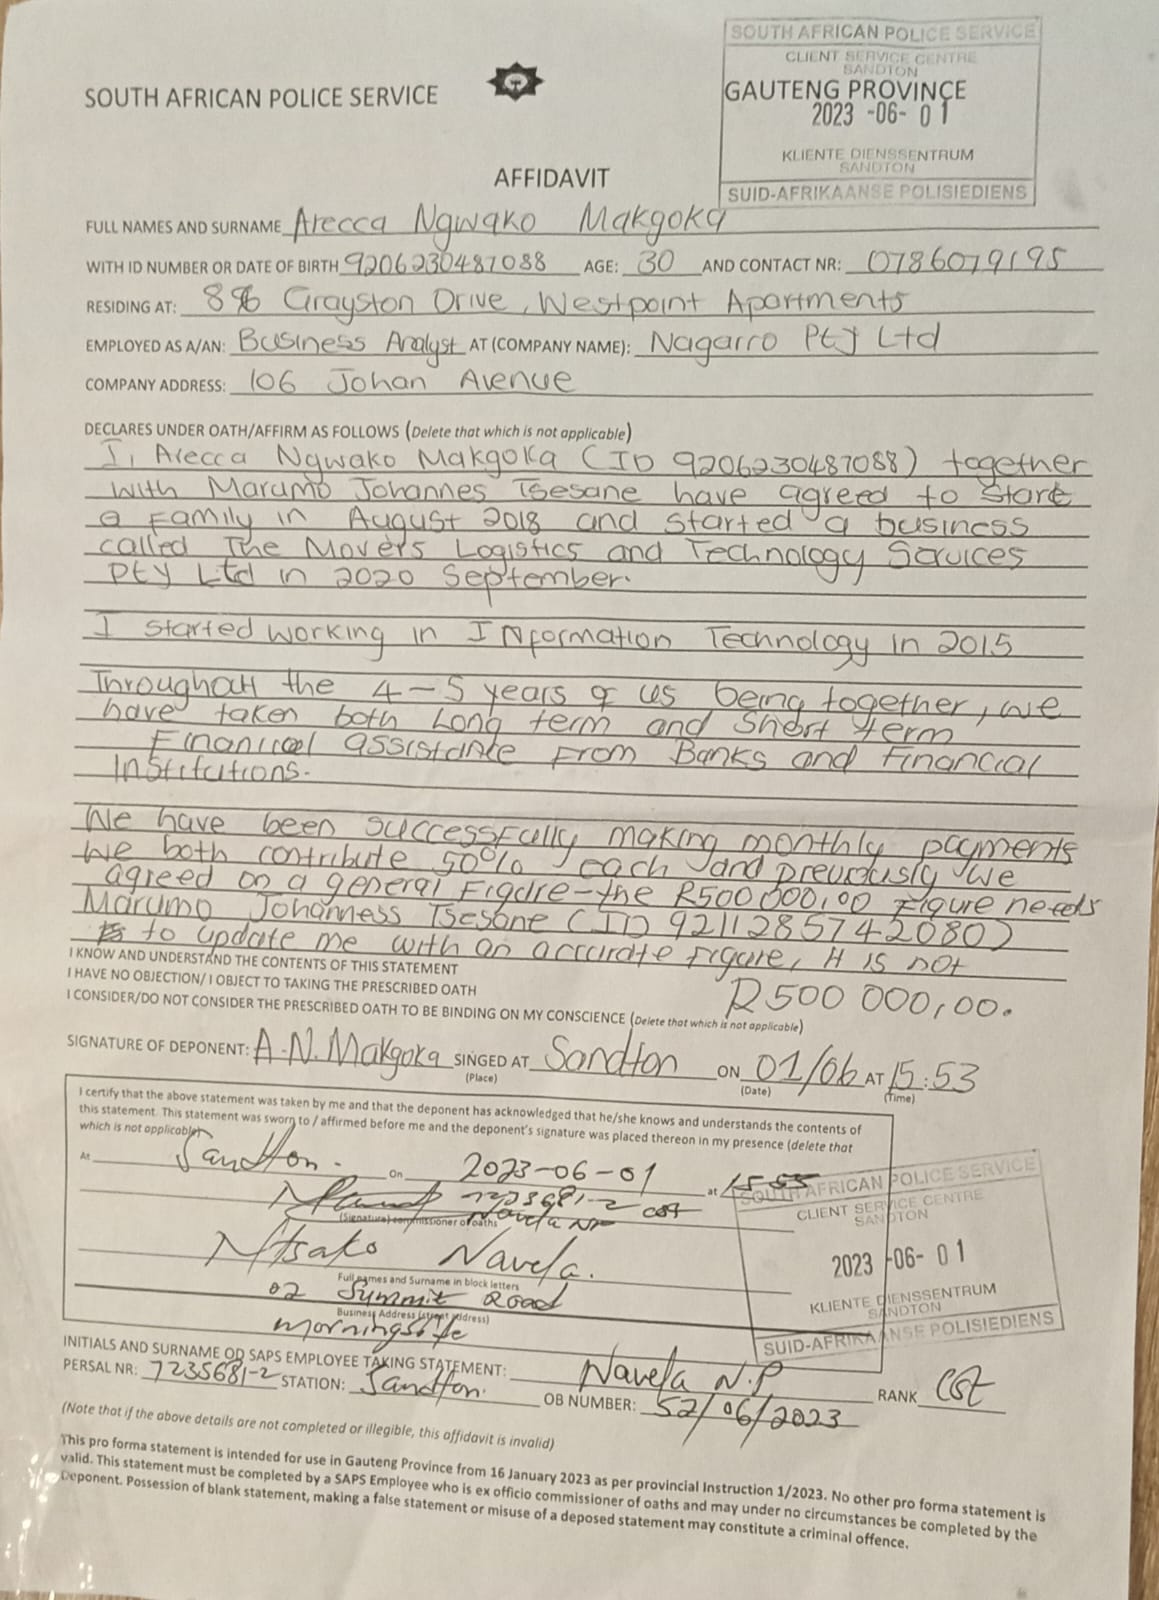 SOUTH AFRICAN POLICE SERVICE
CLIENT SERVICE CENTRE
SANDTON
GAUTENG PROVINCE
2023 -06- 01
KLIENTE DIENSSENTRUM
SANDTON
SUID-AFRIKAANSE POLISIEDIENS
SOUTH AFRICAN POLICE SERVICE
AFFIDAVIT
FULL NAMES AND SURNAME Arecca Ngwako Makgoka
WITH ID NUMBER OR DATE OF BIRTH 9206230487088 AGE: 30 AND CONTACT NR: 0786079195
RESIDING AT: Grayston Drive, Westpoint Apartments
EMPLOYED AS A/AN: Business Analyst AT (COMPANY NAME): Nagarro Pty Ltd
COMPANY ADDRESS: 106 Johan Avenue
DECLARES UNDER OATH/AFFIRM AS FOLLOWS (Delete that which is not applicable)
I, Arecca Ngwako Makgoka (ID 9206230487088) together
with Marumo Johannes Tsesane have agreed to start
a family in August 2018 and started a business
called The Movers Logistics and Technology Services
Pty Ltd in 2020 September.
I started working in Information Technology in 2015
Throughout the 4-5 years of us being together, we
have taken both Long term and Short term
Financial assistance From Banks and Financial
Institutions.
We have been successfully making monthly payments
We both contribute 50% each and previously we
agreed on a general Figure - the R500 000,00 Figure needs
Marumo Johanness Tsesane (ID 9211285742080)
to update me with an accurate figure, it is not
R500 000,00.
I KNOW AND UNDERSTAND THE CONTENTS OF THIS STATEMENT
I HAVE NO OBJECTION/ I OBJECT TO TAKING THE PRESCRIBED OATH
I CONSIDER/DO NOT CONSIDER THE PRESCRIBED OATH TO BE BINDING ON MY CONSCIENCE (Delete that which is not applicable)
SIGNATURE OF DEPONENT: A.N.Makgoka SINGED AT Sandton ON 01/06 AT 15:53
(Place) (Date) (Time)
I certify that the above statement was taken by me and that the deponent has acknowledged that he/she knows and understands the contents of
this statement. This statement was sworn to / affirmed before me and the deponent's signature was placed thereon in my presence (delete that
which is not applicable)
At Sandton. On 2023-06-01 at 15 55
Navela NP cst
(Signature) commissioner of oaths
Ntsako Navela.
Full names and Surname in block letters
02 Summit Road
Business Address (street address)
morningside
SOUTH AFRICAN POLICE SERVICE
CLIENT SERVICE CENTRE
SANDTON
2023 -06- 01
KLIENTE DIENSSENTRUM
SANDTON
SUID-AFRIKAANSE POLISIEDIENS
INITIALS AND SURNAME OD SAPS EMPLOYEE TAKING STATEMENT: Navela N.P RANK Cst
PERSAL NR: 7235681-2 STATION: Sandton. OB NUMBER: 52/06/2023
(Note that if the above details are not completed or illegible, this affidavit is invalid)
This pro forma statement is intended for use in Gauteng Province from 16 January 2023 as per provincial Instruction 1/2023. No other pro forma statement is
valid. This statement must be completed by a SAPS Employee who is ex officio commissioner of oaths and may under no circumstances be completed by the
Deponent. Possession of blank statement, making a false statement or misuse of a deposed statement may constitute a criminal offence.